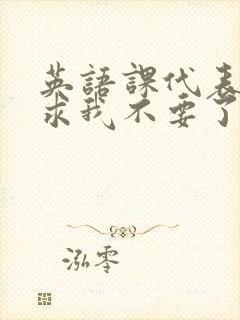 英語課代表
求我不要了
泓零